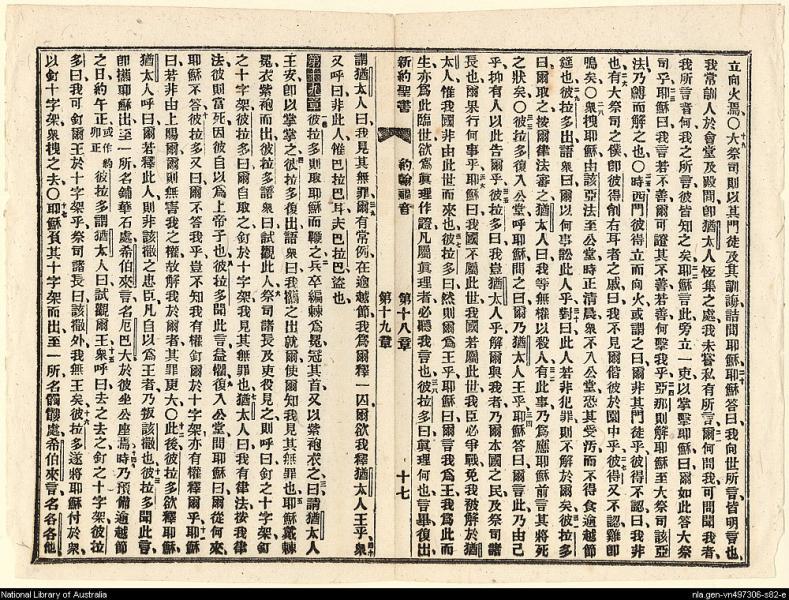 立向火焉〇大祭司則以其門徒及其訓誨詰問耶穌耶穌答曰我向世所言皆明言也
我常訓人於會堂及殿間卽猶太人恆集之處我未嘗私有所言爾何問我可問聞我者
我所言者何我之所言彼皆知之矣耶穌言此旁立一吏以掌擊耶穌曰爾如此答大祭
司乎耶穌曰我言若不善爾可證其不善若善何擊我乎亞那則解耶穌至大祭司該亞
法乃縛而解之也〇時西門彼得立而向火或謂之曰爾非其門徒乎彼得不認曰我非
也有大祭司之僕卽彼得削右耳者之戚曰我不見爾偕彼於園中乎彼得又不認雞卽
鳴矣〇衆拽耶穌由該亞法至公堂時正清晨衆不入公堂恐其受污而不得食逾越節
筵也彼拉多出語衆曰爾以何事訟此人乎對曰此人若非犯罪則不解於爾矣彼拉多
曰爾取之按爾律法審之猶太人曰我等無權以殺人有此事乃爲應耶穌前言其將死
之狀矣〇彼拉多復入公堂呼耶穌問之曰爾乃猶太人王乎耶穌答曰爾言此乃由己
乎抑有人以此告爾乎彼拉多曰我豈猶太人乎解爾與我者乃爾本國之民及祭司諸
長也爾果行何事乎耶穌曰我國不屬此世我國若屬此世我臣必爭戰免我被解於猶
太人惟我國非由此世而來也彼拉多曰然則爾爲王乎耶穌曰爾言我爲王我爲此而
生亦爲此臨世欲爲眞理作證凡屬眞理者必聽我言也彼拉多曰眞理何也言畢復出
新約聖書 約翰福音 第十八章 十七
第十九章
謂猶太人曰我見其無罪爾有常例在逾越節我爲爾釋一囚爾欲我釋猶太人王乎衆
又呼曰非此人惟巴拉巴耳夫巴拉巴盜也
第十九章 彼拉多則取耶穌而鞭之兵卒編棘爲冕冠其首又以紫袍衣之曰請猶太人
王安卽以掌掌之彼拉多復出語衆曰我攜之出就爾使爾知我見其無罪也耶穌戴棘
冕衣紫袍而出彼拉多語衆曰試觀此人祭司諸長及吏役見之則呼曰釘之十字架釘
之十字架彼拉多曰爾自取之釘於十字架我見其無罪也猶太人曰我有律法按我律
法彼則當死因彼自以爲上帝子也彼拉多聞此言益懼復入公堂問耶穌曰爾從何來
耶穌不答彼拉多又曰爾不答我乎豈不知我有權釘爾於十字架亦有權釋爾乎耶穌
曰若非由上賜爾爾則無害我之權故解我於爾者其罪更大〇此後彼拉多欲釋耶穌
猶太人呼曰爾若釋此人則非該撒之忠臣凡自以爲王者乃叛該撒也彼拉多聞此言
卽攜耶穌出至一所名鋪華石處希伯來言名厄巴大於彼坐公座焉時乃預備逾越節
之日約午正或作約卯正彼拉多謂猶太人曰試觀爾王衆呼曰去之去之釘之十字架彼拉
多曰我可釘爾王於十字架乎祭司諸長曰該撒外我無王矣彼拉多遂將耶穌付於衆
以釘十字架衆拽之去〇耶穌負其十字架而出至一所名髑髏處希伯來言名各各他
National Library of Australia
nla.gen-vn497306-s82-e